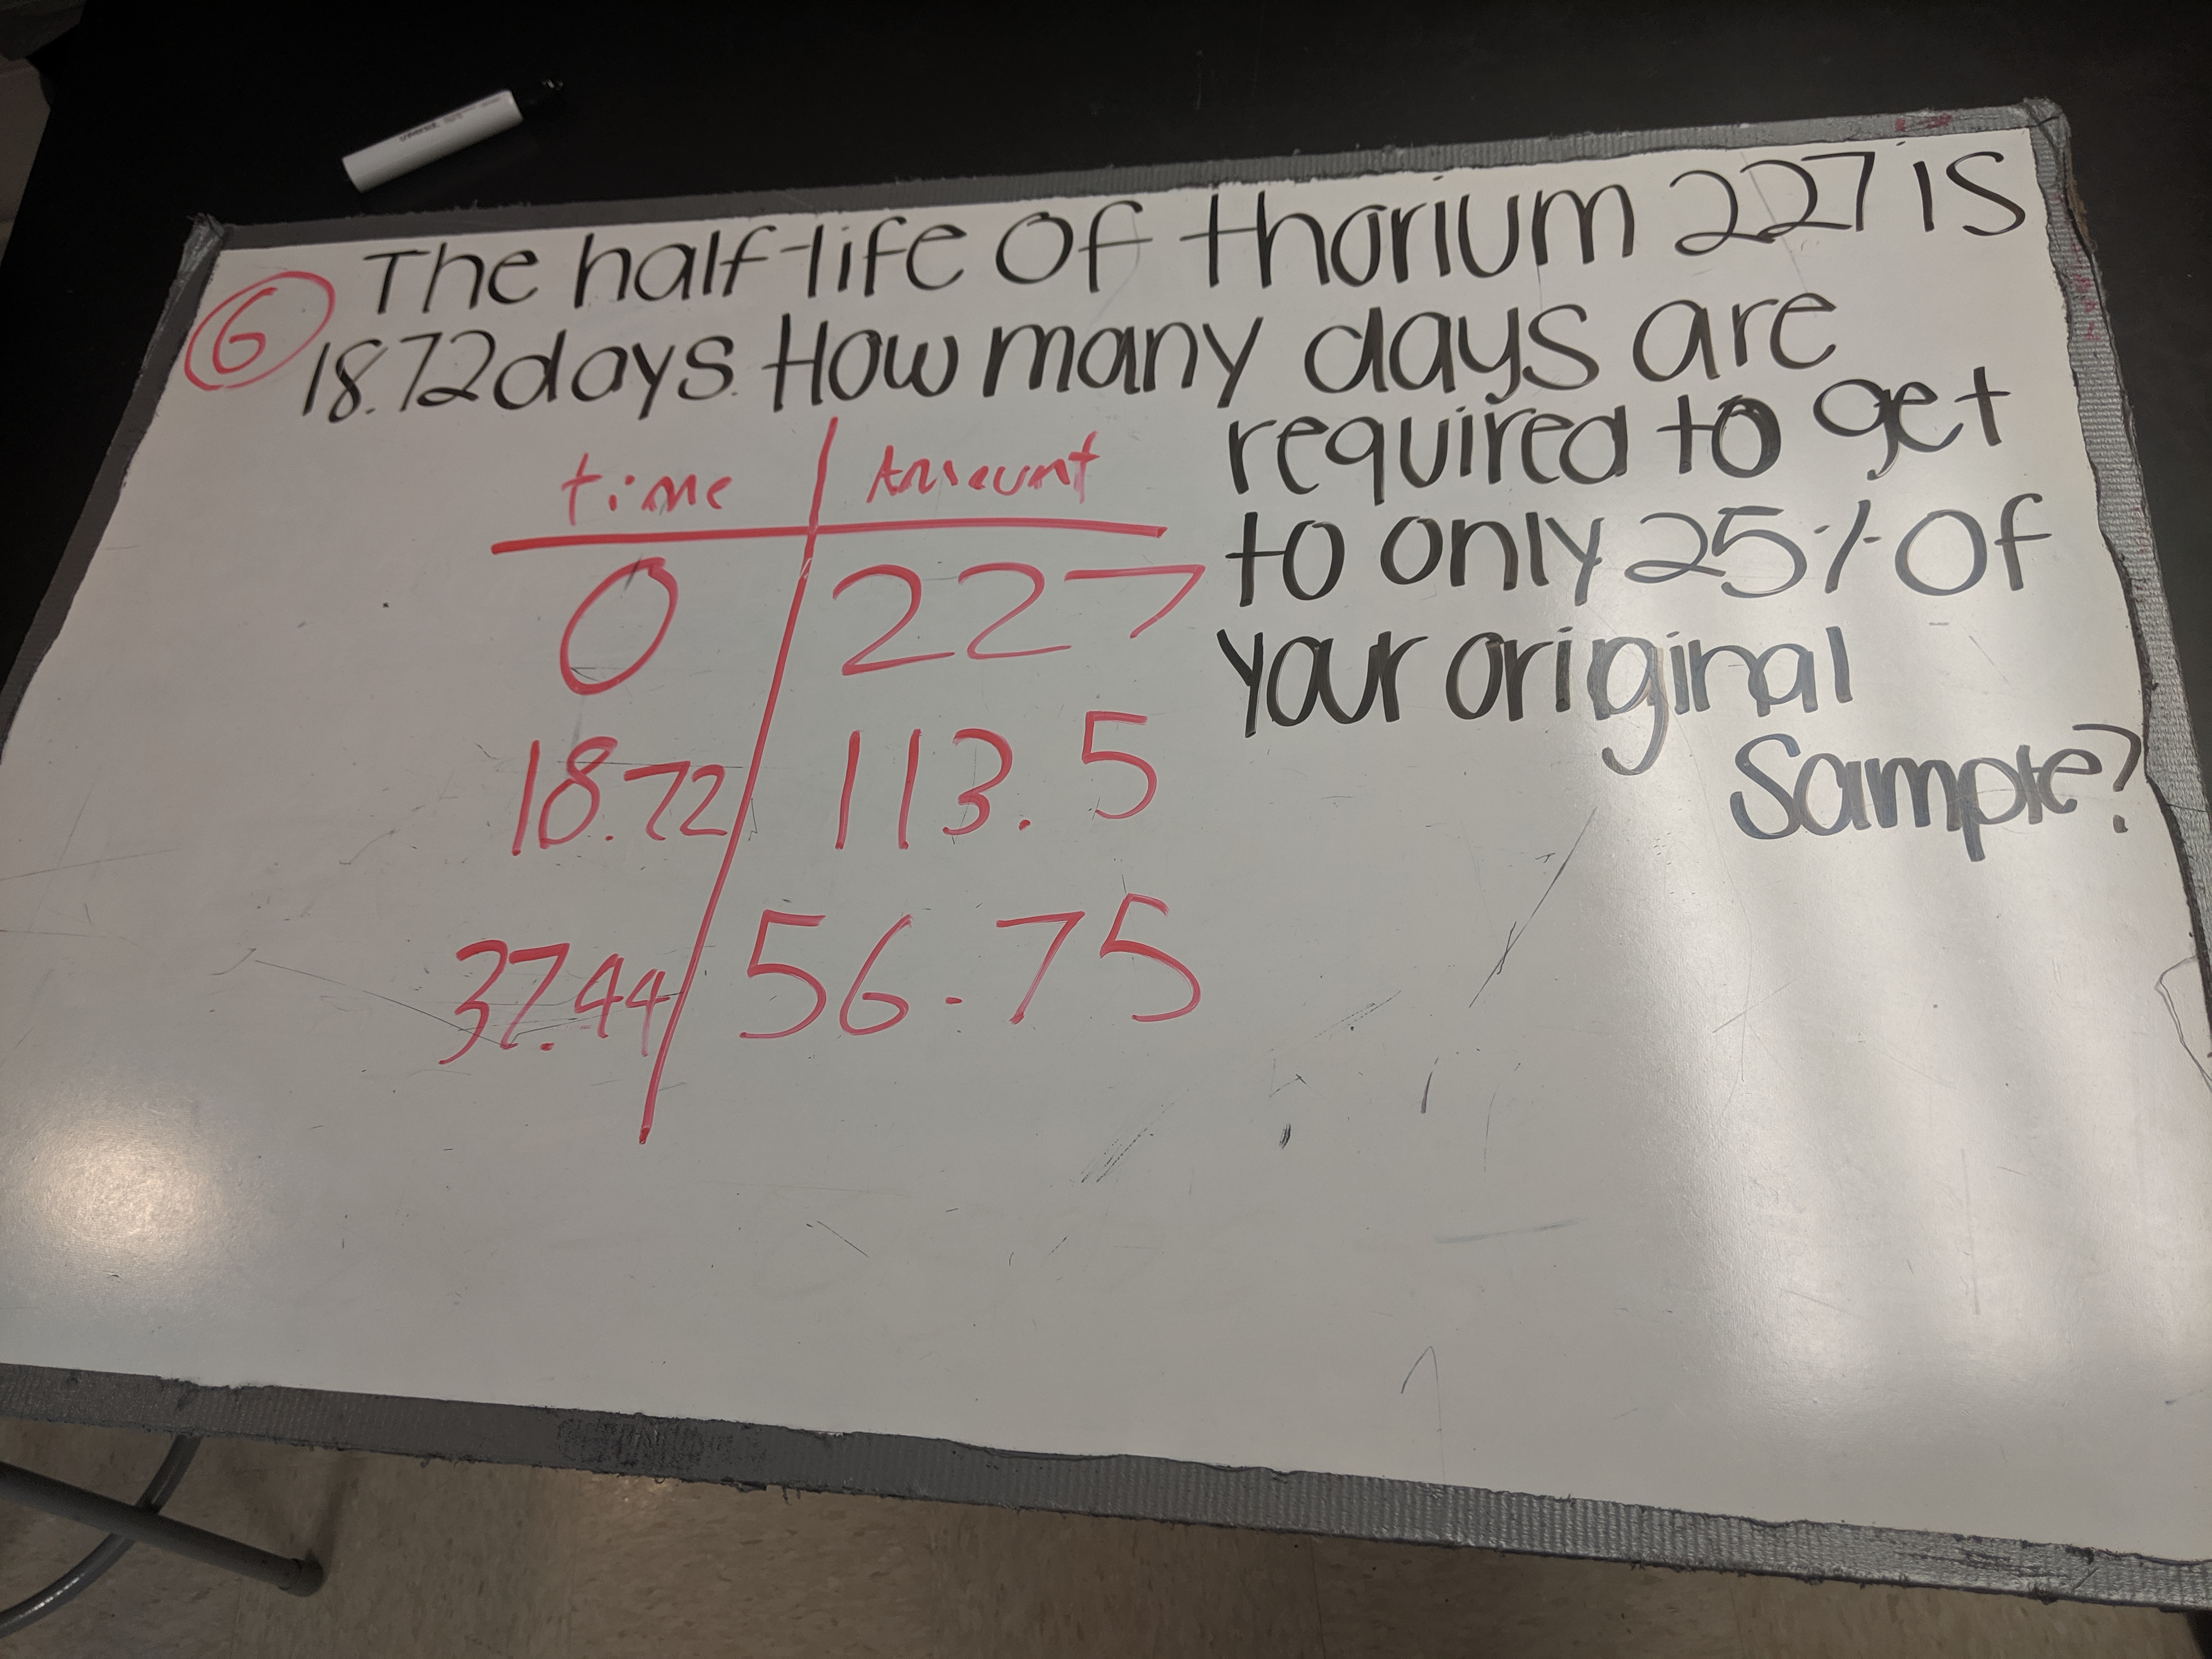 6 The half-life of thorium 227 is
18.72 days. How many days are
required to get
to only 25% of
your original
Sample?
time Amount
0 227
18.72 113.5
37.44 56.75